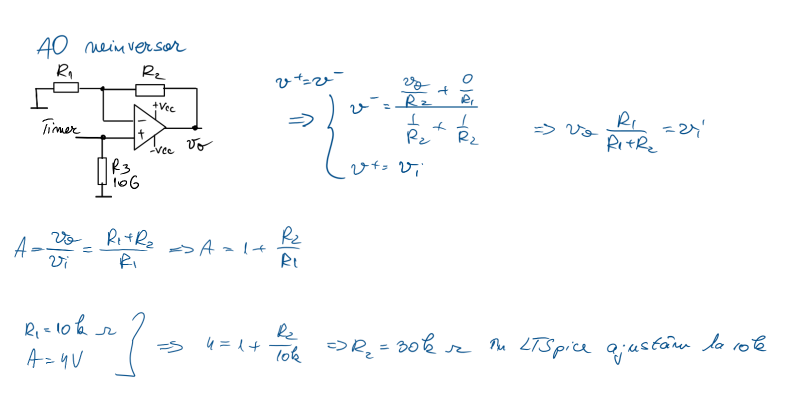 AO neinversor
R₁ R₂
+Vcc
Timer - +
-Vcc vo
R3
10G
v⁺=v⁻
=> { v⁻ = (vo/R2 + 0/R1) / (1/R2 + 1/R2) => vo R1/(R1+R2) = vi
v⁺= vi
A = vo/vi = (R1+R2)/R1 => A = 1 + R2/R1
R₁ = 10k Ω
A = 4V } => 4 = 1 + R2/10k => R₂ = 30k Ω În LTSpice ajustăm la 10k